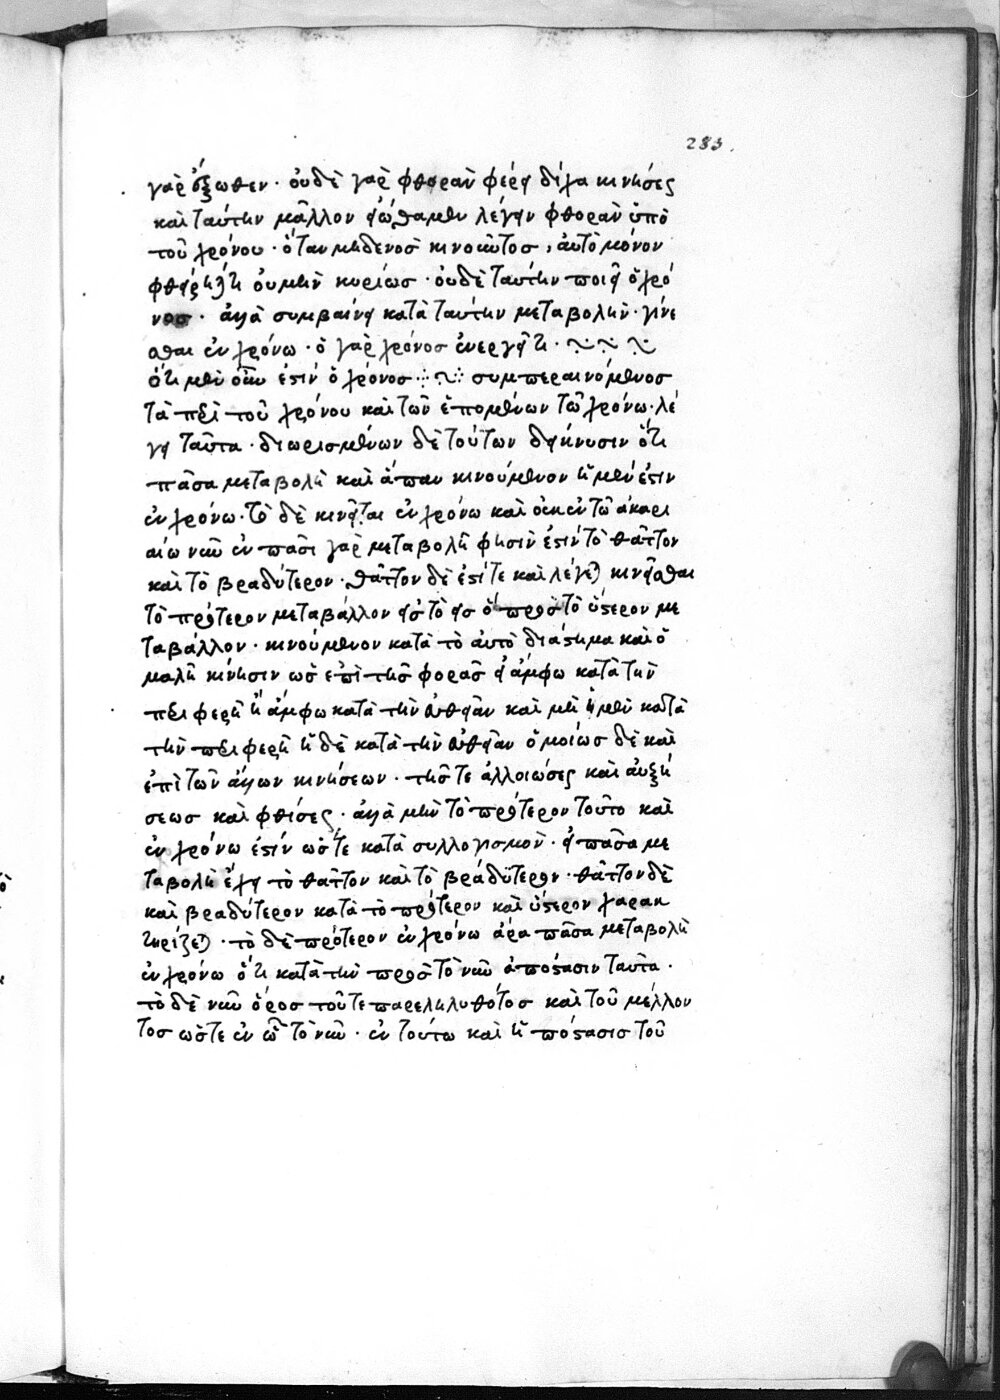 283.
γὰρ ἔξωθεν · οὐδὲ γὰρ φθορὰν φέρει δίχα κινήσεως
καὶ ταύτην μᾶλλον εἰώθαμεν λέγειν φθορὰν ὑπὸ
τοῦ χρόνου · ὅταν μηδενὸσ κινοῦντοσ, αὐτὸ μόνον
φθείρηταί τι οὐ μὴν κυρίωσ · οὐδὲ ταύτην ποιεῖ ὁ χρό
νοσ · ἀλλὰ συμβαίνει κατὰ ταύτην μεταβολὴν · γίνε
σθαι ἐν χρόνω · ὁ γὰρ χρόνοσ ἐνεργεῖ τι ·
ὅτι μὲν οὖν ἐστίν ὁ χρόνοσ · συμπεραινόμενοσ
τὰ περὶ τοῦ χρόνου καὶ τῶν ἑπομένων τῶ χρόνω · λέ
γει ταῦτα · διωρισμένων δὲ τούτων δείκνυσιν ὅτι
πᾶσα μεταβολὴ καὶ ἅπαν κινούμενον ἡ μέν ἐστιν
ἐν χρόνω · τὸ δὲ κινεῖται ἐν χρόνω καὶ οὐκ ἐν τῶ ἀκαρι
αίω νῦν ἐν πᾶσι γὰρ μεταβολῆ φησὶν ἐστὶν τὸ θᾶττον
καὶ τὸ βραδύτερον · θᾶττον δὲ ἐστί τε καὶ λέγεται κινεῖσθαι
τὸ πρότερον μεταβάλλον εἰσ τὸ εἰσ ὃ πρὸσ τὸ ὕστερον με
ταβάλλον · κινούμενον κατὰ τὸ αὐτὸ διάστημα καὶ ὁ
μαλὴ κίνησιν ὡσ ἐπὶ τῆσ φορᾶσ εἰ ἄμφω κατὰ τὴν
περιφερῆ ἢ ἄμφω κατὰ τὴν εὐθεῖαν καὶ μὴ ἡ μὲν κατὰ
τὴν περιφερῆ ἡ δὲ κατὰ τὴν εὐθεῖαν ὁμοίωσ δὲ καὶ
ἐπὶ τῶν ἄλλων κινήσεων · τῆσ τε ἀλλοιώσεως καὶ αὐξή
σεωσ καὶ φθίσεως · ἀλλὰ μὴν τὸ πρότερον τοῦτο καὶ
ἐν χρόνω ἐστίν ὥστε κατὰ συλλογισμὸν · εἰ πᾶσα με
ταβολὴ ἔχει τὸ θᾶττον καὶ τὸ βραδύτερον · θᾶττον δὲ
καὶ βραδύτερον κατὰ τὸ πρότερον καὶ ὕστερον χαρακ
τηρίζεται · τὸ δὲ πρότερον ἐν χρόνω ἄρα πᾶσα μεταβολὴ
ἐν χρόνω ὅτι κατὰ τὴν πρὸσ τὸ νῦν ἀπόστασιν ταῦτα ·
τὸ δὲ νῦν ὅροσ τοῦ τε παρεληλυθότοσ καὶ τοῦ μέλλον
τοσ ὥστε ἐν ὧ τὸ νῦν · ἐν τούτω καὶ ἡ πόστασισ τοῦ